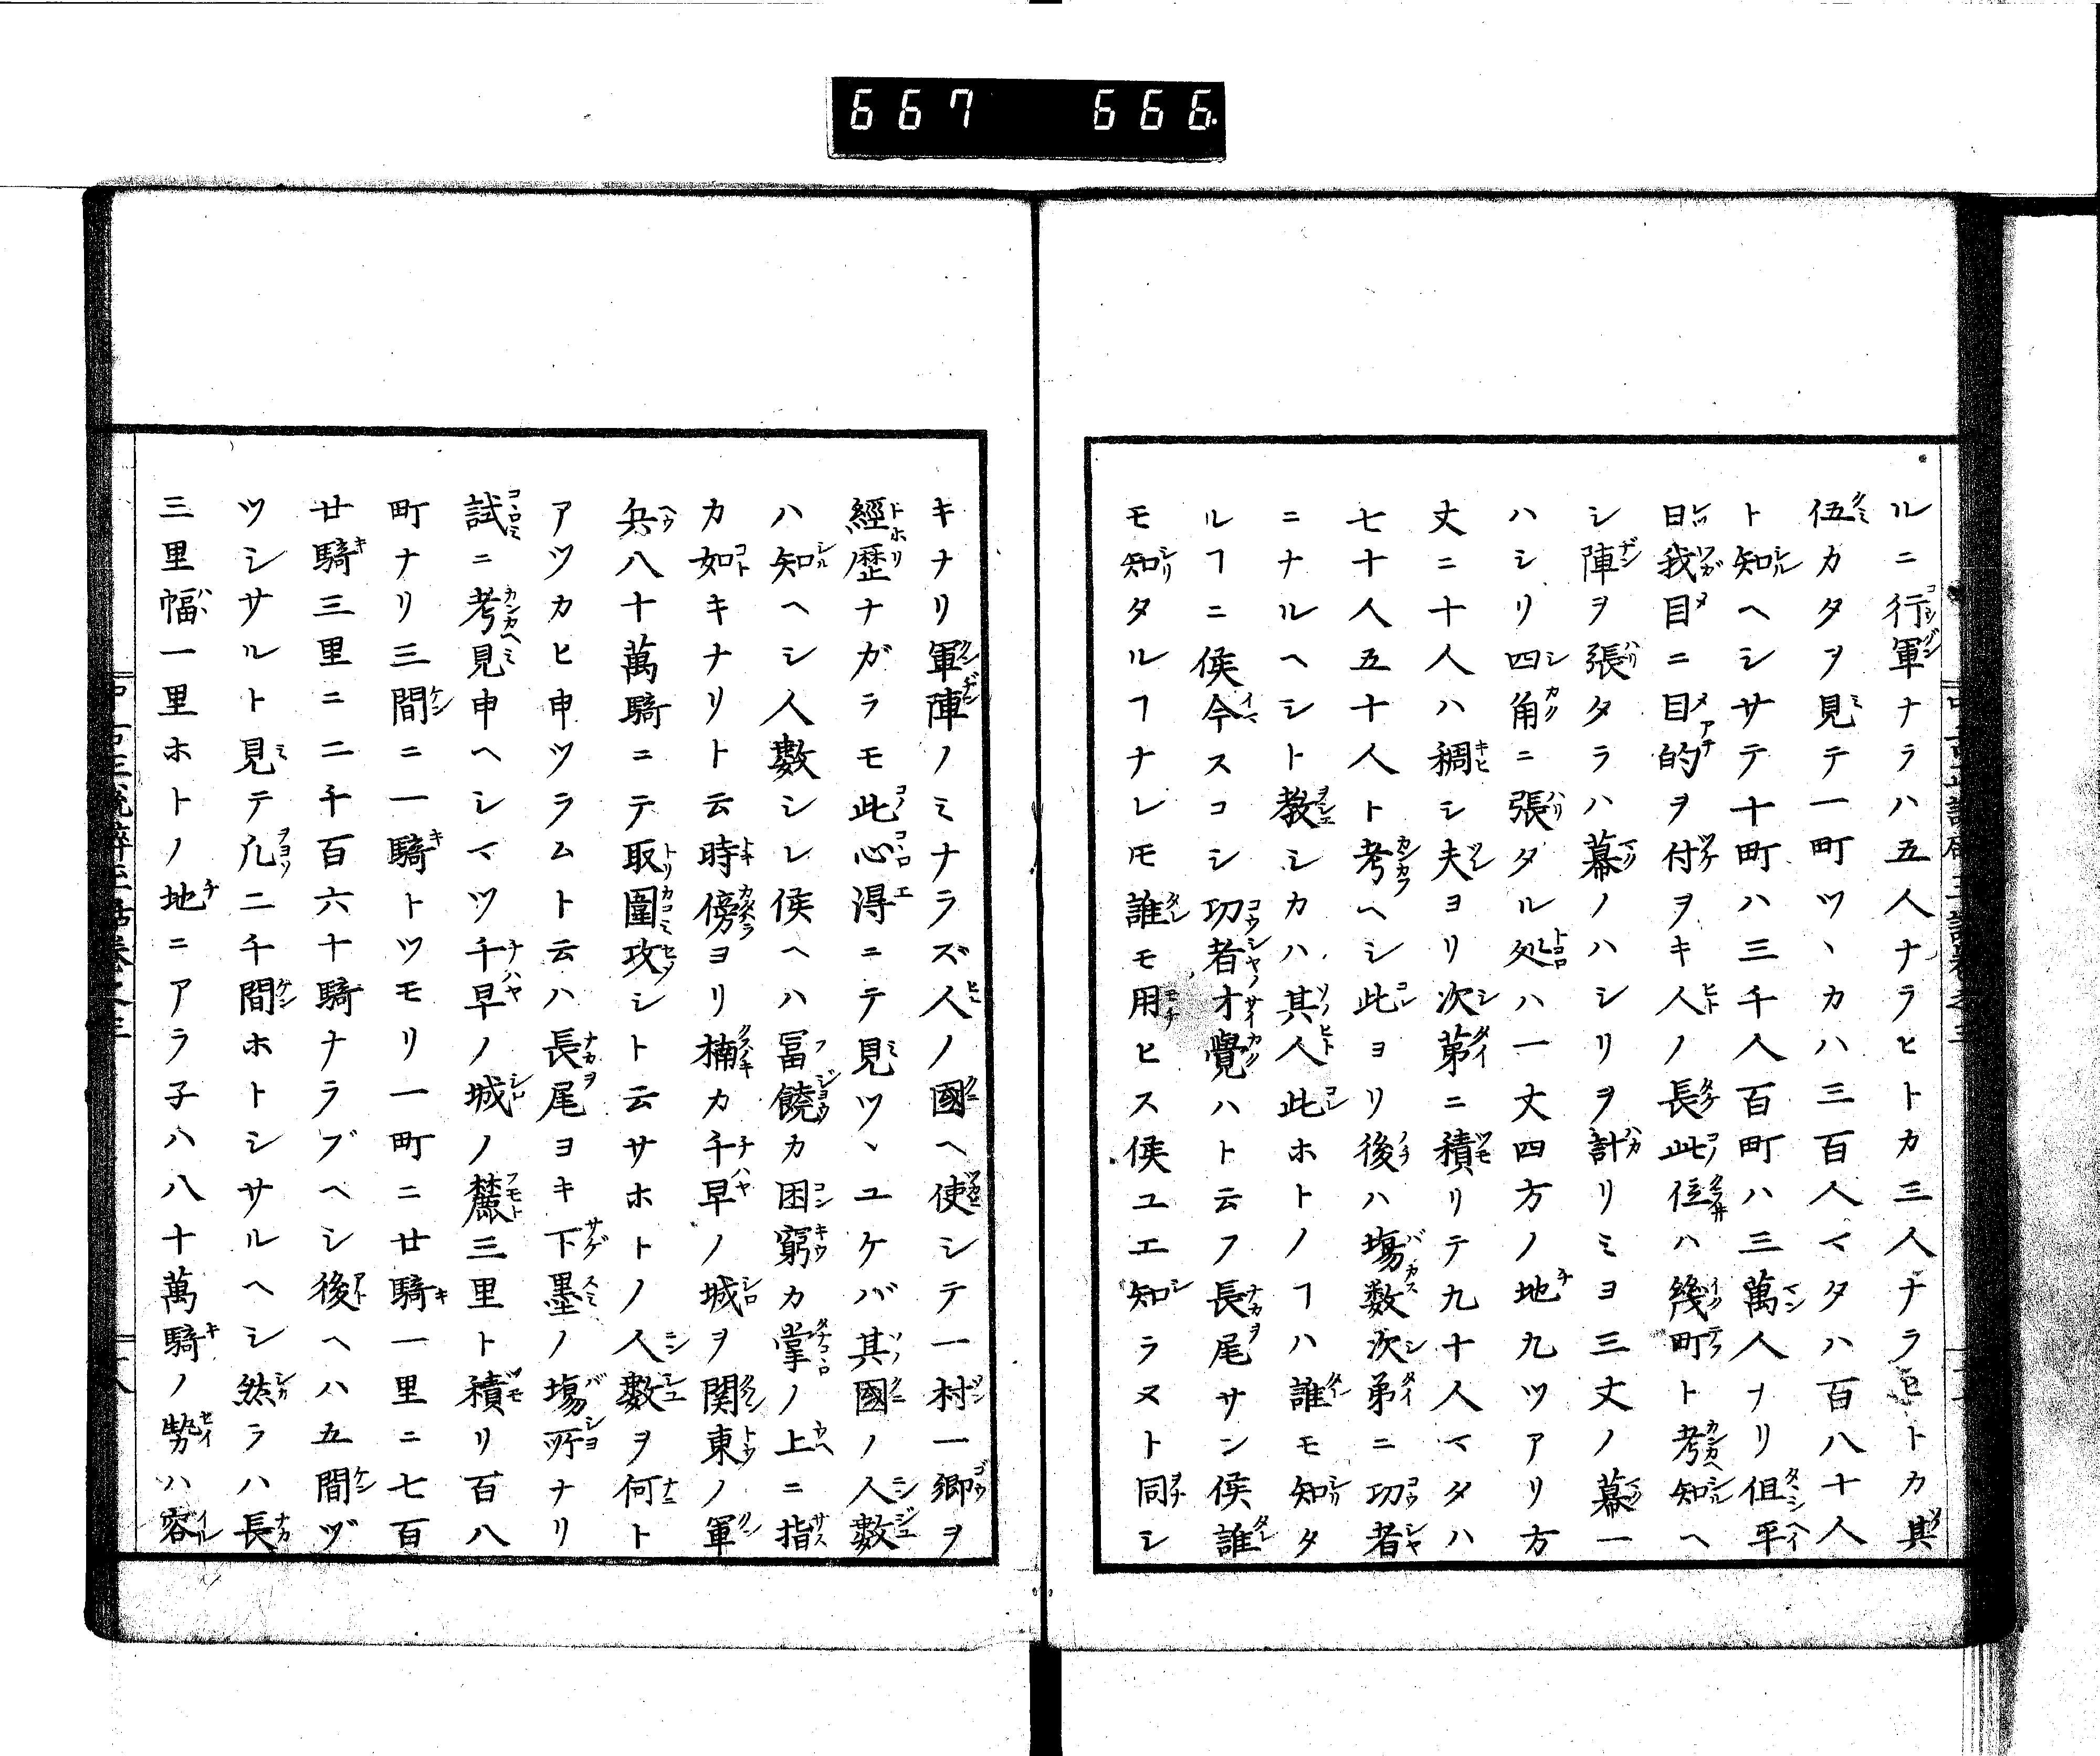 667 666
ルニ行軍ナラハ五人ナラヒトカ三人ナラヒトカ其
伍カタヲ見テ一町ツヽカハ三百人マタハ百八十人
ト知ヘシサテ十町ハ三千人百町ハ三萬人ナリ伹平
日我目ニ目的ヲ付ヲキ人ノ長此位ハ幾町ト考知ヘ
シ陣ヲ張タラハ幕ノハシリヲ計リミヨ三丈ノ幕一
ハシリ四角ニ張タル処ハ一丈四方ノ地九ツアリ方
丈ニ十人ハ稠シ夫ヨリ次第ニ積リテ九十人マタハ
七十人五十人ト考ヘシ此ヨリ後ハ塲数次弟ニ功者
ニナルヘシト教シカハ其人此ホトノヿハ誰モ知タ
ルヿニ侯今スコシ功者才覺ハト云フ長尾サン侯誰
モ知タルヿナレ𪜈誰モ用ヒス侯ユエ知ラヌト同シ
キナリ軍陣ノミナラズ人ノ國ヘ使シテ一村一郷ヲ
經歴ナガラモ此心得ニテ見ツヽユケバ其國ノ人數
ハ知ヘシ人數シレ侯ヘハ冨饒カ困窮カ掌ノ上ニ指
カ如キナリト云時傍ヨリ楠カ千早ノ城ヲ関東ノ軍
兵八十萬騎ニテ取圍攻シト云サホトノ人數ヲ何ト
アツカヒ申ツラムト云ハ長尾ヨキ下墨ノ塲所ナリ
試ニ考見申ヘシマツ千早ノ城ノ麓三里ト積リ百八
町ナリ三間ニ一騎トツモリ一町ニ廿騎一里ニ七百
廿騎三里ニ二千百六十騎ナラブヘシ後ヘハ五間ヅ
ツシサルト見テ凢二千間ホトシサルヘシ然ラハ長
三里幅一里ホトノ地ニアラ子ハ八十萬騎ノ勢ハ容